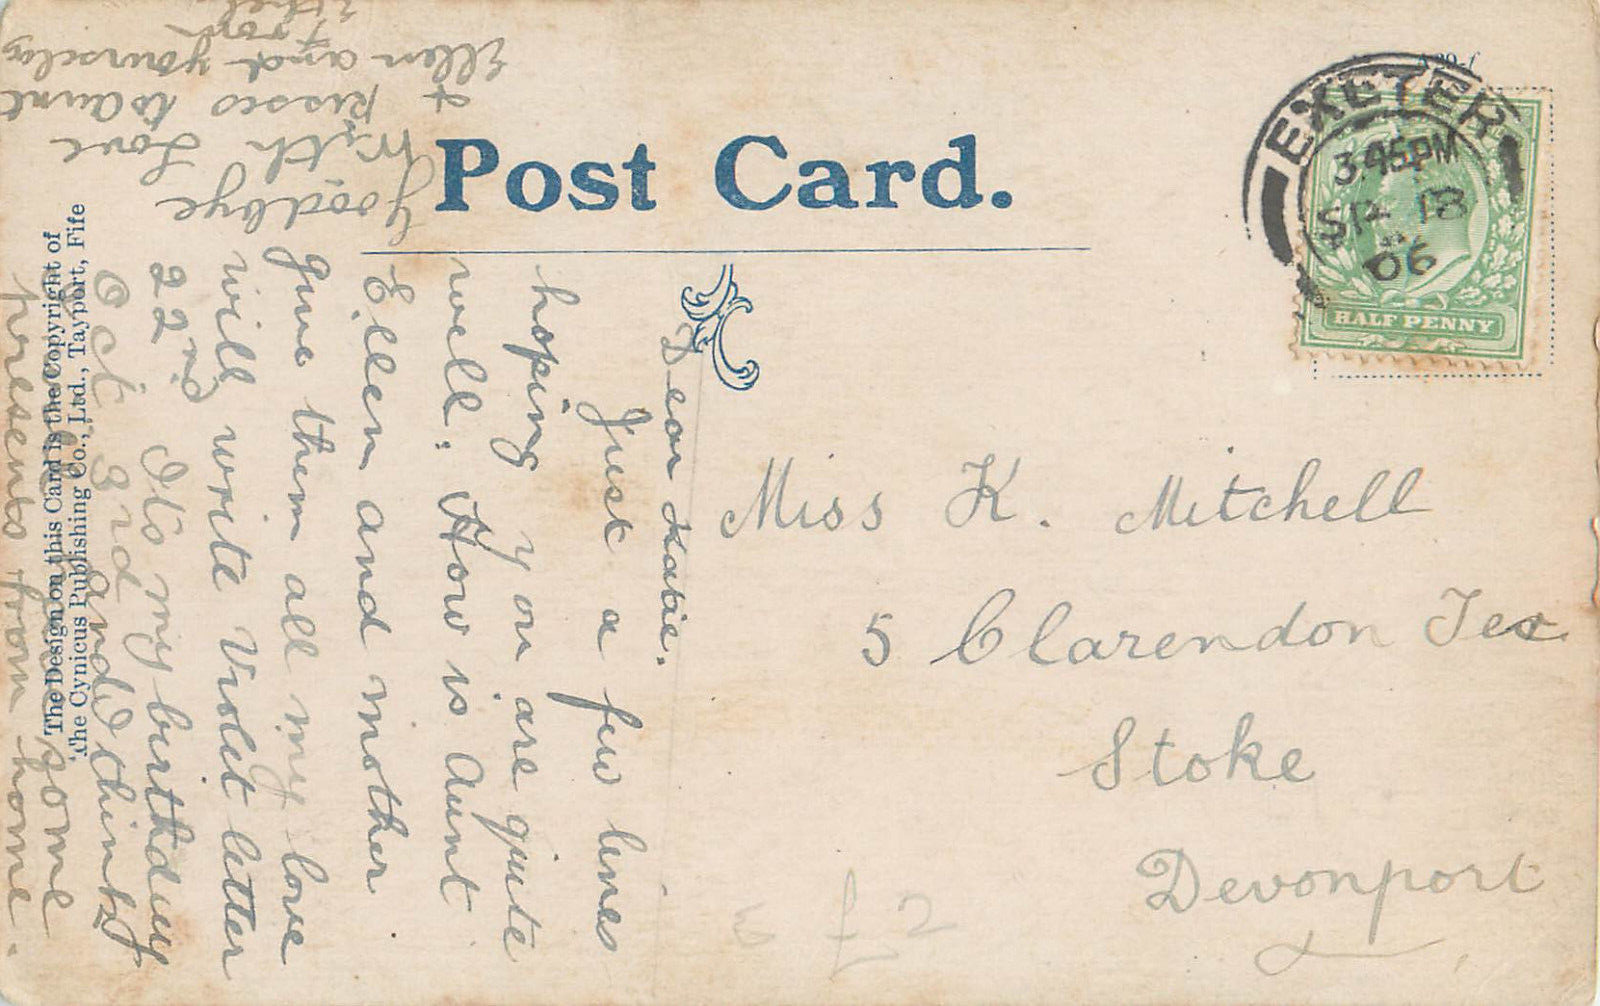 Post Card.
EXETER
3.45PM
SP 18
06
HALF PENNY
The Design on this Card is the Copyright of
The Cynicus Publishing Co., Ltd., Tayport, Fife
Miss K. Mitchell
5 Clarendon Ter
Stoke
Devonport
Dear Katie.
Just a few lines
hoping you are quite
well. How is Aunt
Ellen and mother
give them all my love
will write Violet letter
22nd Its my birthday
Oct 3rd and I think I
some
presents from home.
Goodbye
With Love
+ kisses to Aunt
Ellen and yourself
from
£2